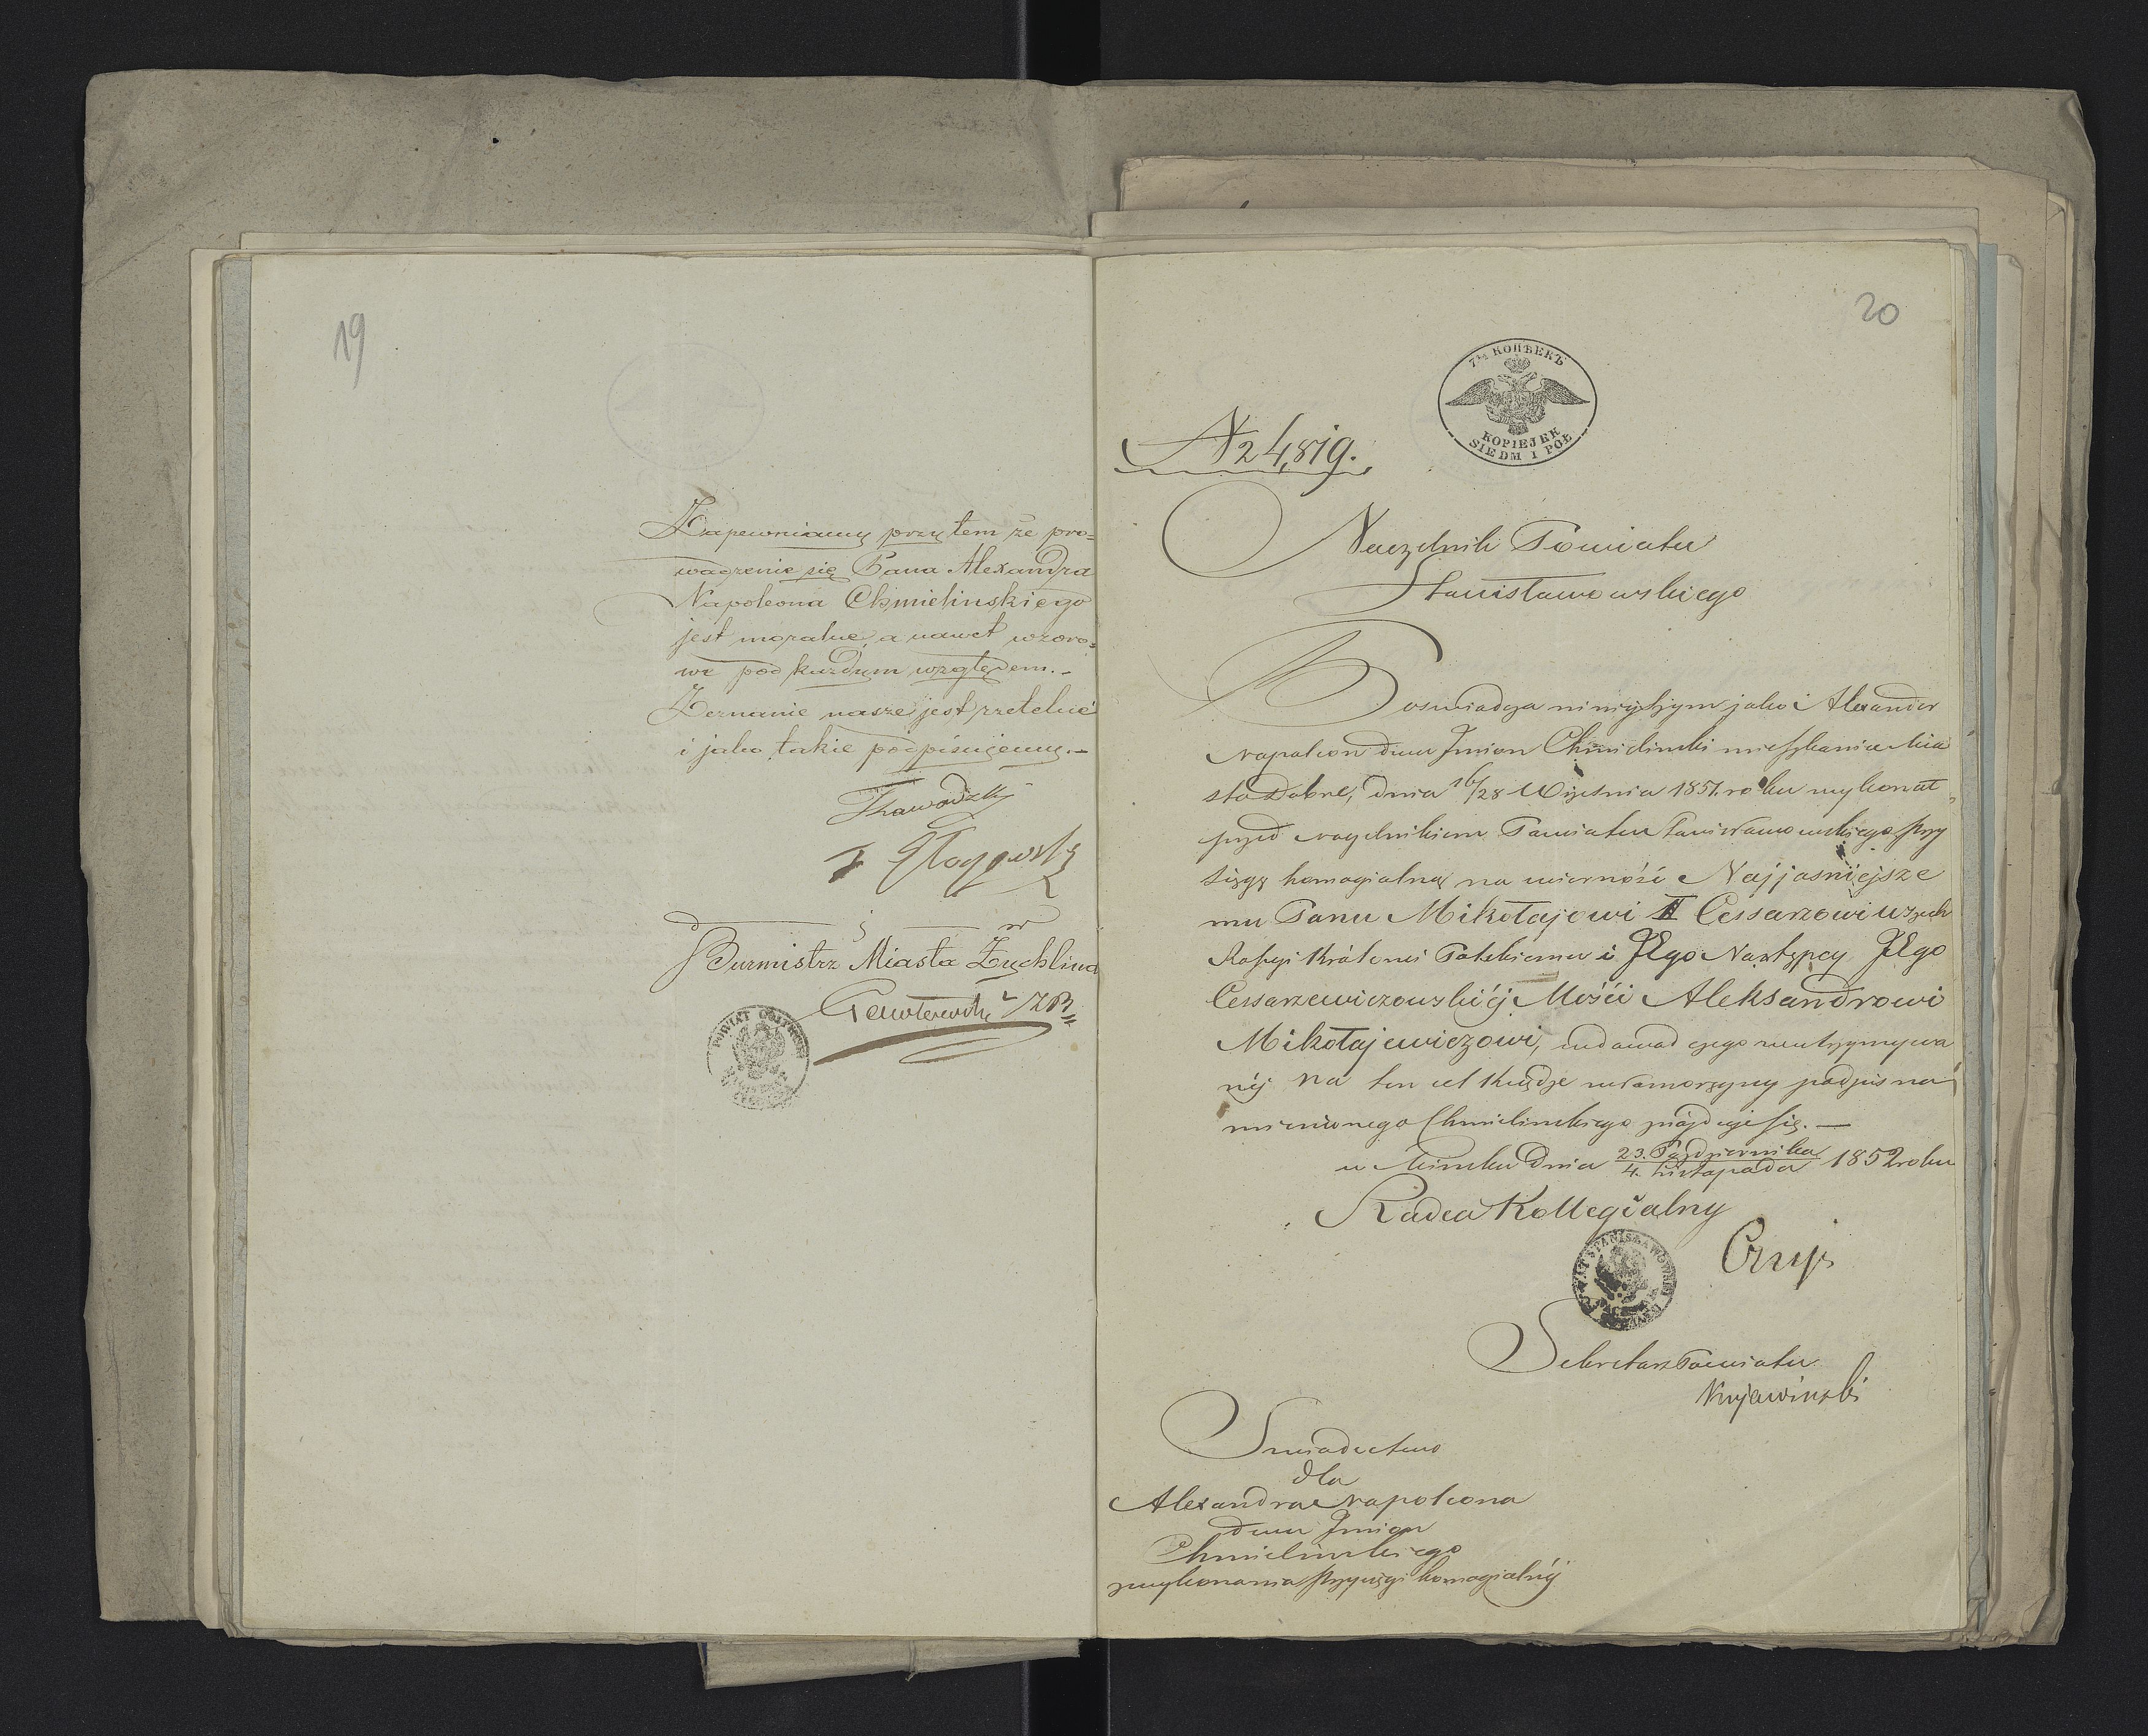 19
Zapewniamy przytem że pro=
wadzenie się Pana Alexandra
Napoleona Chmielinskiego
jest moralne, a nawet wzoro=
we pod każdym względem.-
Zeznanie nasze jest rzetelné
i jako takie podpisujemy.-
Burmistrz Miasta Żychlina
POWIAT GOSTYNSKI
20
7½ КОПѢЕКЪ
KOPIEJEK
SIEDM I PÓŁ
N 24,819.
Naczelnik Powiatu
Stanisławowskiego
Poswiadcza niniejszym jako Alexander
Napoleon dwu Imion Chmielinski mieszkaniec Mia
sta Dobre, dnia 16/28 Września 1851. roku wykonał
przed Naczelnikiem Powiatu Stanisławowskiego przy
sięgę homagialną na wierność Najjasniejsze
mu Panu Mikołajowi II Cessarzowi wszech
Rossyi Królowi Polskiemu i JEgo Następcy JEgo
Cessarzewiczowskiéj Mości Aleksandrowi
Mikołajewiczowi, na dowód czego w utrzymywa
néj na ten cel Księdze własnoręczny podpis na
mienionego Chmielinskiego znajduje się. —
w Mińsku dnia 23. Października / 4. Listopada 1852 roku
Radca Kollegialny
POWIAT STANISŁAWOWSKI
Sekretarz Powiatu
Kujawinski
Swiadectwo
dla
Alexandra Napoleona
dwu Imion
Chmielinskiego
z wykonania przysięgi homagialnéj